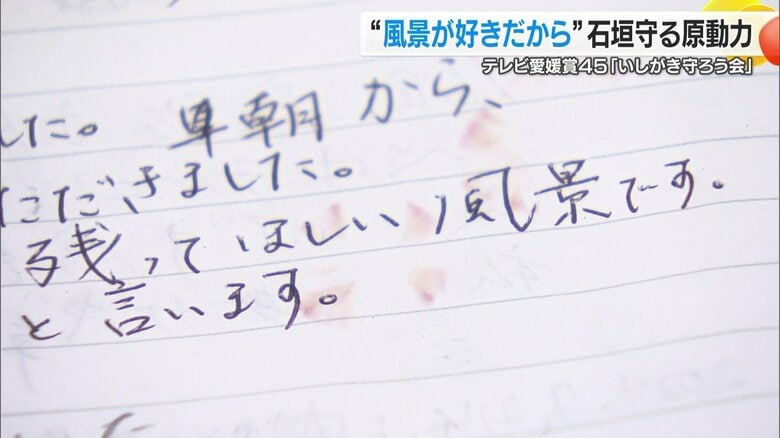 “風景が好きだから”石垣守る原動力
テレビ愛媛賞45「いしがき守ろう会」
した。早朝から、
ただいきました。
残ってほしい風景です。
と言います。